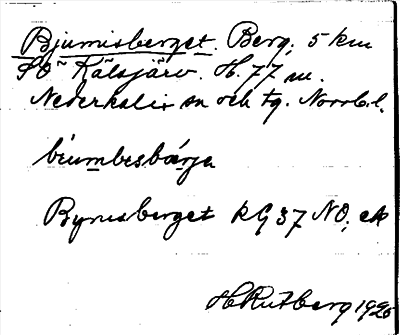 Bjumisberget. Berg; 5 km
SO Kälsjärv. H. 77 m.
Nederkalix sn och tg. Norrb. l.
béumbesbárja
Byrusberget kG 37 NO; ek
H Rutberg 1925